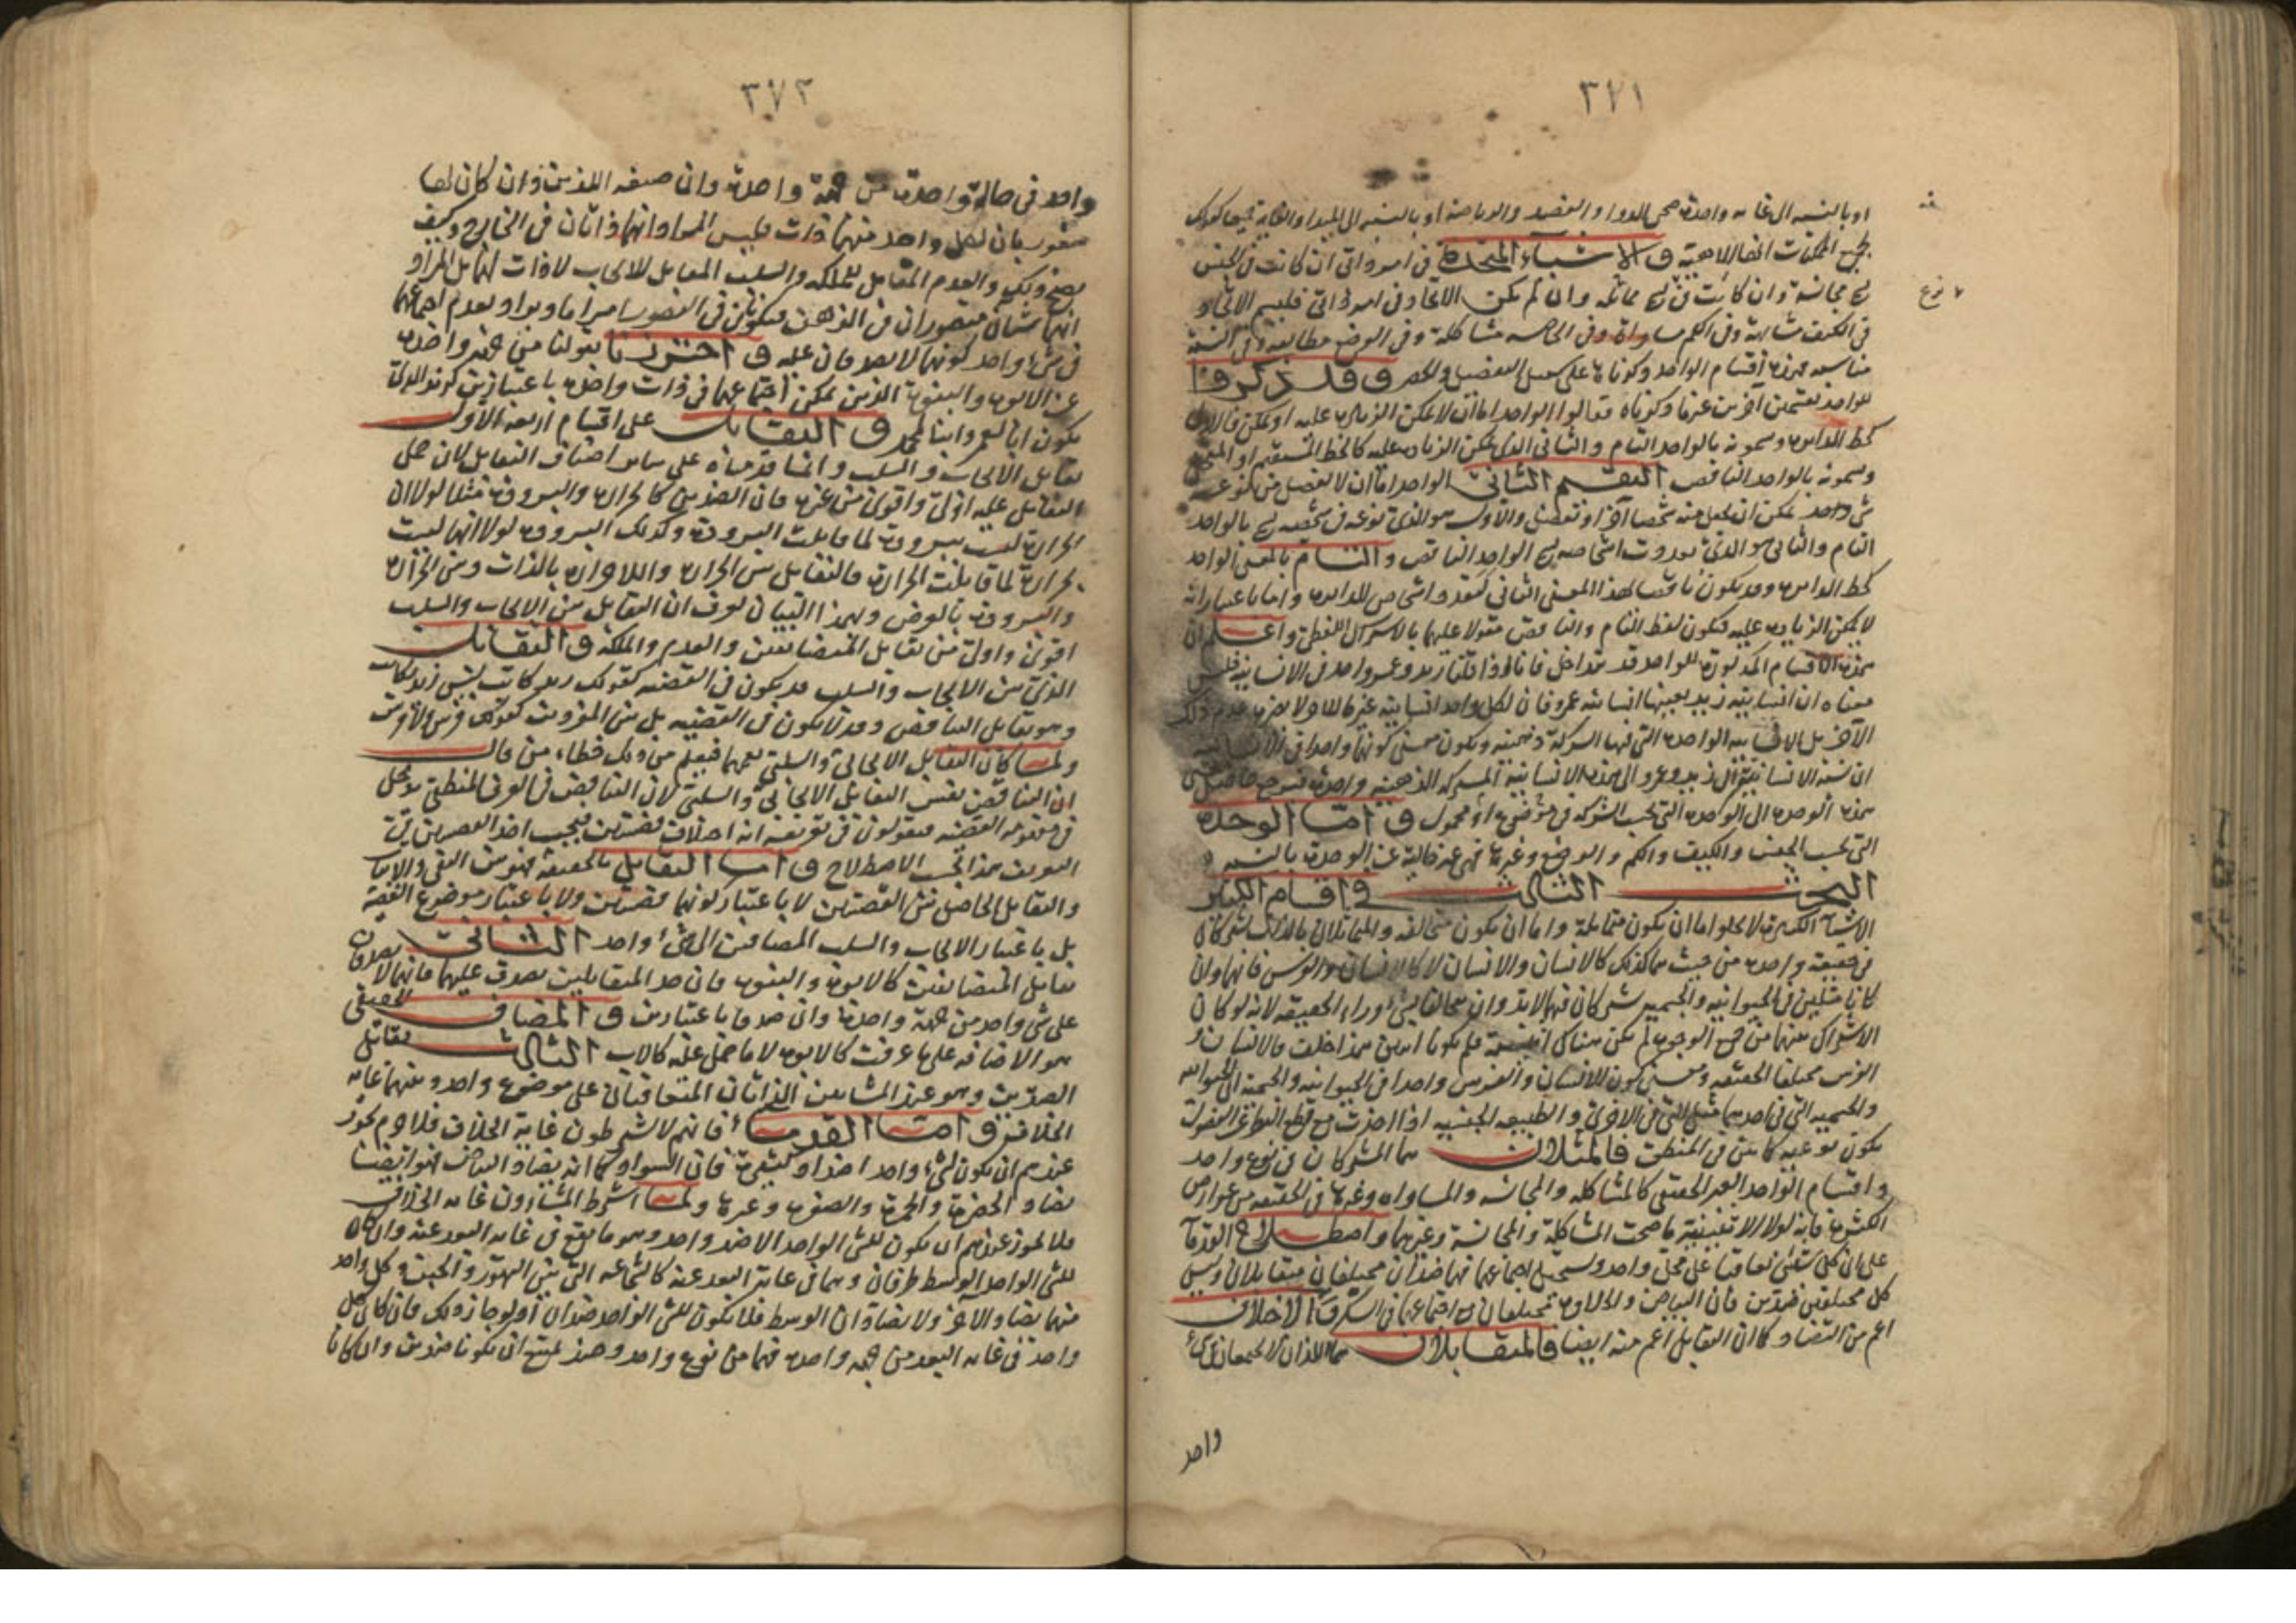 ٣٧١
او بالنسبه الى غايه واحدة صحى الدواء والفصد والرياضة او بالنسبه الى المبدا والغايه جميعا كقولك
لجميع الممكنات انها الالاهية والاشياء المتحدة فى امر ذاتى ان كانت فى الجنس
يسمى مجانسة وان كانت فى يسمى مماثلة وان لم يكن الاتحاد فى امر ذاتى فليس الاتحاد
نوع
فى الكيف مشابهة وفى الكم مساواة وفى الخاصه مشاكلة وفى الوضع مطابقة وفى النسبة
مناسبه فهذه اقسام الواحد وكوناه على سبيل التفصيل والحصر وقد ذكروا
للواحد تقسيمين آخرين غير ما ذكرناه فقالوا الواحد اما ان لا يمكن الزيادة عليه او يمكن فالاول
كخط الدايره ويسمونه بالواحد التام والثانى الذى يمكن الزياده عليه كالخط المستقيم او المنحنى
ويسمونه بالواحد الناقص التقسيم الثانى الواحد اما ان لا يفضل من نوعه
شى واحد يمكن ان يجعل منه شخصا آخر او تفضل والاول هو الذى نوعه فى شخصه يسمى بالواحد
التام والثانى هو الذى تعددت اشخاصه يسمى الواحد الناقص والتام بالمعنى الواحد
كخط الدايره وقد يكون ناقصا لهذا المعنى الثانى لتعدد اشخاص للدايره واما باعتبار انه
لا يمكن الزياده عليه فيكون لفظ التام والناقص مقولا عليهما بالاشتراك اللفظى واعلم ان
هذه الاقسام المذكورة للواحد قد تتداخل فانا اذا قلنا زيد وعمرو واحد فى الانسانيه فليس
معناه ان انسانيته زيد بعينها انسانيه عمرو فان لكل واحد انسانية غير ما للاخر ولا يضر عدم ذلك
الآخر بل الانسانيه الواحده التى فيها الشركة ذهنيه ويكون معنى كونهما واحدا فى الانسانيه
ان نسبه الانسانية الى زيد وعمرو الى هذه الانسانية المشتركه الذهنيه واحدة فيرجع حاصل
هذه الوحده الى الوحده التى بحسب الشركه فى موضوع او محمول واما الوحدة
التى بحسب الجنس والكيف والكم والوضع وغيرها فهى غير خالية عن الوحدة بالنسبه
البحث الثالث فى اقسام الكثير
الاشياء الكثيرة لا يخلو اما ان يكون متماثلة واما ان يكون متخالفه والمتماثلان بالذات يشتركان
فى حقيقة واحده من حيث هما كذلك كالانسان والانسان لا كالانسان والفرس فانهما وان
كانا متماثلين فى الحيوانيه والجسميه يشتركان فيهما لابد وان يتخالفا بشى وراء الحقيقه لانه لو كان
الاشتراك بينهما من جميع الوجوه لم يكن هناك اثنينية فلم يكونا اثنين هذا خلف فالانسان و
الفرس مختلفا الحقيقه ومعنى كون الانسان والفرس واحدا فى الحيوانيه والجسمية ان الحيوانيه
والجسميه التى فى احدهما مثل للتى فى الاخرى والطبيعه الجنسيه اذا اخذت مع قطع النظر عن الفصول
يكون نوعيه كما بين فى المنطق فالمثلان هما المشتركان فى نوع واحد
واقسام الواحد الغير الحقيقى كالمشاكله والمجانسه والمساواه وغيرها فى الحقيقه من عوارض
الكثره فانه لولا الاثنينية ما صحت المشاكلة والمجانسة وغيرهما واصطلاح القدماء
على ان كل شيئين تعاقبا على محل واحد ويستحيل اجتماعهما فهما ضدان مختلفان متقابلان وليس
كل مختلفين ضدين فان البياض والحلاوه مختلفان مع اجتماعهما فى السكر والاختلاف
اعم من التضاد كما ان التقابل اعم منه ايضا فالمتقابلان هما اللذان لا يجتمعان فى شئ
واحد
٣٧٢
واحد فى حالة واحدة من جهة واحدة وان صيغه اللذين وان كان لها
شعور بان لكل واحد منهما ذات فليس المراد انهما ذاتان فى الخارج وكيف
يصح ذلك والعدم المقابل للملكه والسلب المقابل للايجاب لا ذات لهما بل المراد
انهما شيئان متصوران فى الذهن فيكونان فى التصور امرا ما ويراد بعدم اجتماعهما
فى شئ واحد كونهما لا يصدقان عليه واحترزنا بقولنا من جهة واحدة
عن الابوه والبنوة الذين يمكن اجتماعهما فى ذات واحده باعتبارين كزيد الذى
يكون ابا لعمرو وابنا لمحمد والتقابل على اقسام اربعه الاول
تقابل الايجاب والسلب وانما قدمناه على ساير اصناف التقابل لان حمل
التقابل عليه اولى واقوى من غيره فان الضدين كالحراره والبروده مثلا لولا ان
الحرارة ليست ببرودة لما قابلت البرودة وكذلك البروده لولا انها ليست
بحرارة لما قابلت الحرارة فالتقابل بين الحراره واللاحراره بالذات وبين الحراره
والبرودة بالعرض وبهذا البيان يعرف ان التقابل بين الايجاب والسلب
اقوى واولى من تقابل المتضايفين والعدم والملكه والتقابل
الذى بين الايجاب والسلب قد يكون فى القضيه كقولك زيد كاتب ليس زيد بكاتب
وهو تقابل التناقض وقد لا يكون فى القضيه بل بين المفردين كقولك فرس لا فرس
ولما كان التقابل الايجابى والسلبى يعمهما فيعلم من ذلك خطاء من قال
ان التناقض نفس التقابل الايجابى والسلبى لان التناقض فى العرف المنطقى يدخل
فى مفهومه القضيه فيقولون فى تعريفه انه اختلاف قضيتين فيجب اخذ القضيتين فى
التعريف هذا بحسب الاصطلاح واما التقابل بالحقيقه فهو بين النفى والاثبات
والتقابل الحاصل بين القضيتين لا باعتبار كونهما قضيتين ولا باعتبار موضوع القضية
بل باعتبار الايجاب والسلب المضافين الى شئ واحد الثانى
تقابل المتضايفين كالابوه والبنوه فان حد المتقابلين يصدق عليهما فانهما لا يصدقان
على شى واحد من جهة واحدة وان صدقا باعتبارين والمضاف الحقيقى
هو الاضافه على ما عرفت كالابوه لا ما حمل عليه كالاب الثالث تقابل
الضدين وهو عند المشائين الذاتان المتعاقبان على موضوع واحد وبينهما غايه
الخلاف واما القدماء فانهم لا يشترطون غاية الخلاف فلا جرم يجوز
عندهم ان يكون لشئ واحد اضداد كثيرة فان السواد كما انه يضاد البياض فهو ايضا
يضاد الخضرة والحمرة والصفره وغيرها ولما اشترط المشاؤون غايه الخلاف
فلا يجوز عندهم ان يكون للشئ الواحد الا ضد واحد وهو ما يقع فى غايه البعد عنه وان كان
للشئ الواحد الوسط طرفان وهما فى غاية البعد عنه كالشجاعه التى بين التهور والجبن وكل واحد
منهما يضاد الآخر ولا يضادان الوسط فلا يكون للشئ الواحد ضدان او لو جاز ذلك فان كان كل
واحد فى غايه البعد من جهه واحده فهما من نوع واحد وحينئذ يمتنع ان يكونا ضدين وان كانا